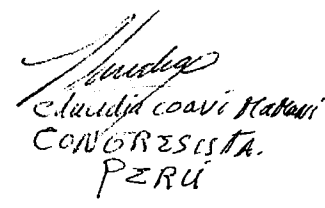 Claudia
Claudia Coari Mamani
CONGRESISTA.
PERÚ